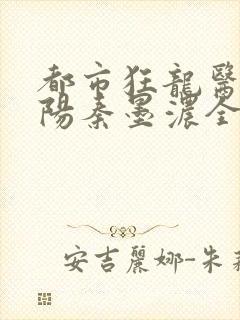 都市狂龍醫
陽秦墨濃全
安吉麗娜-朱